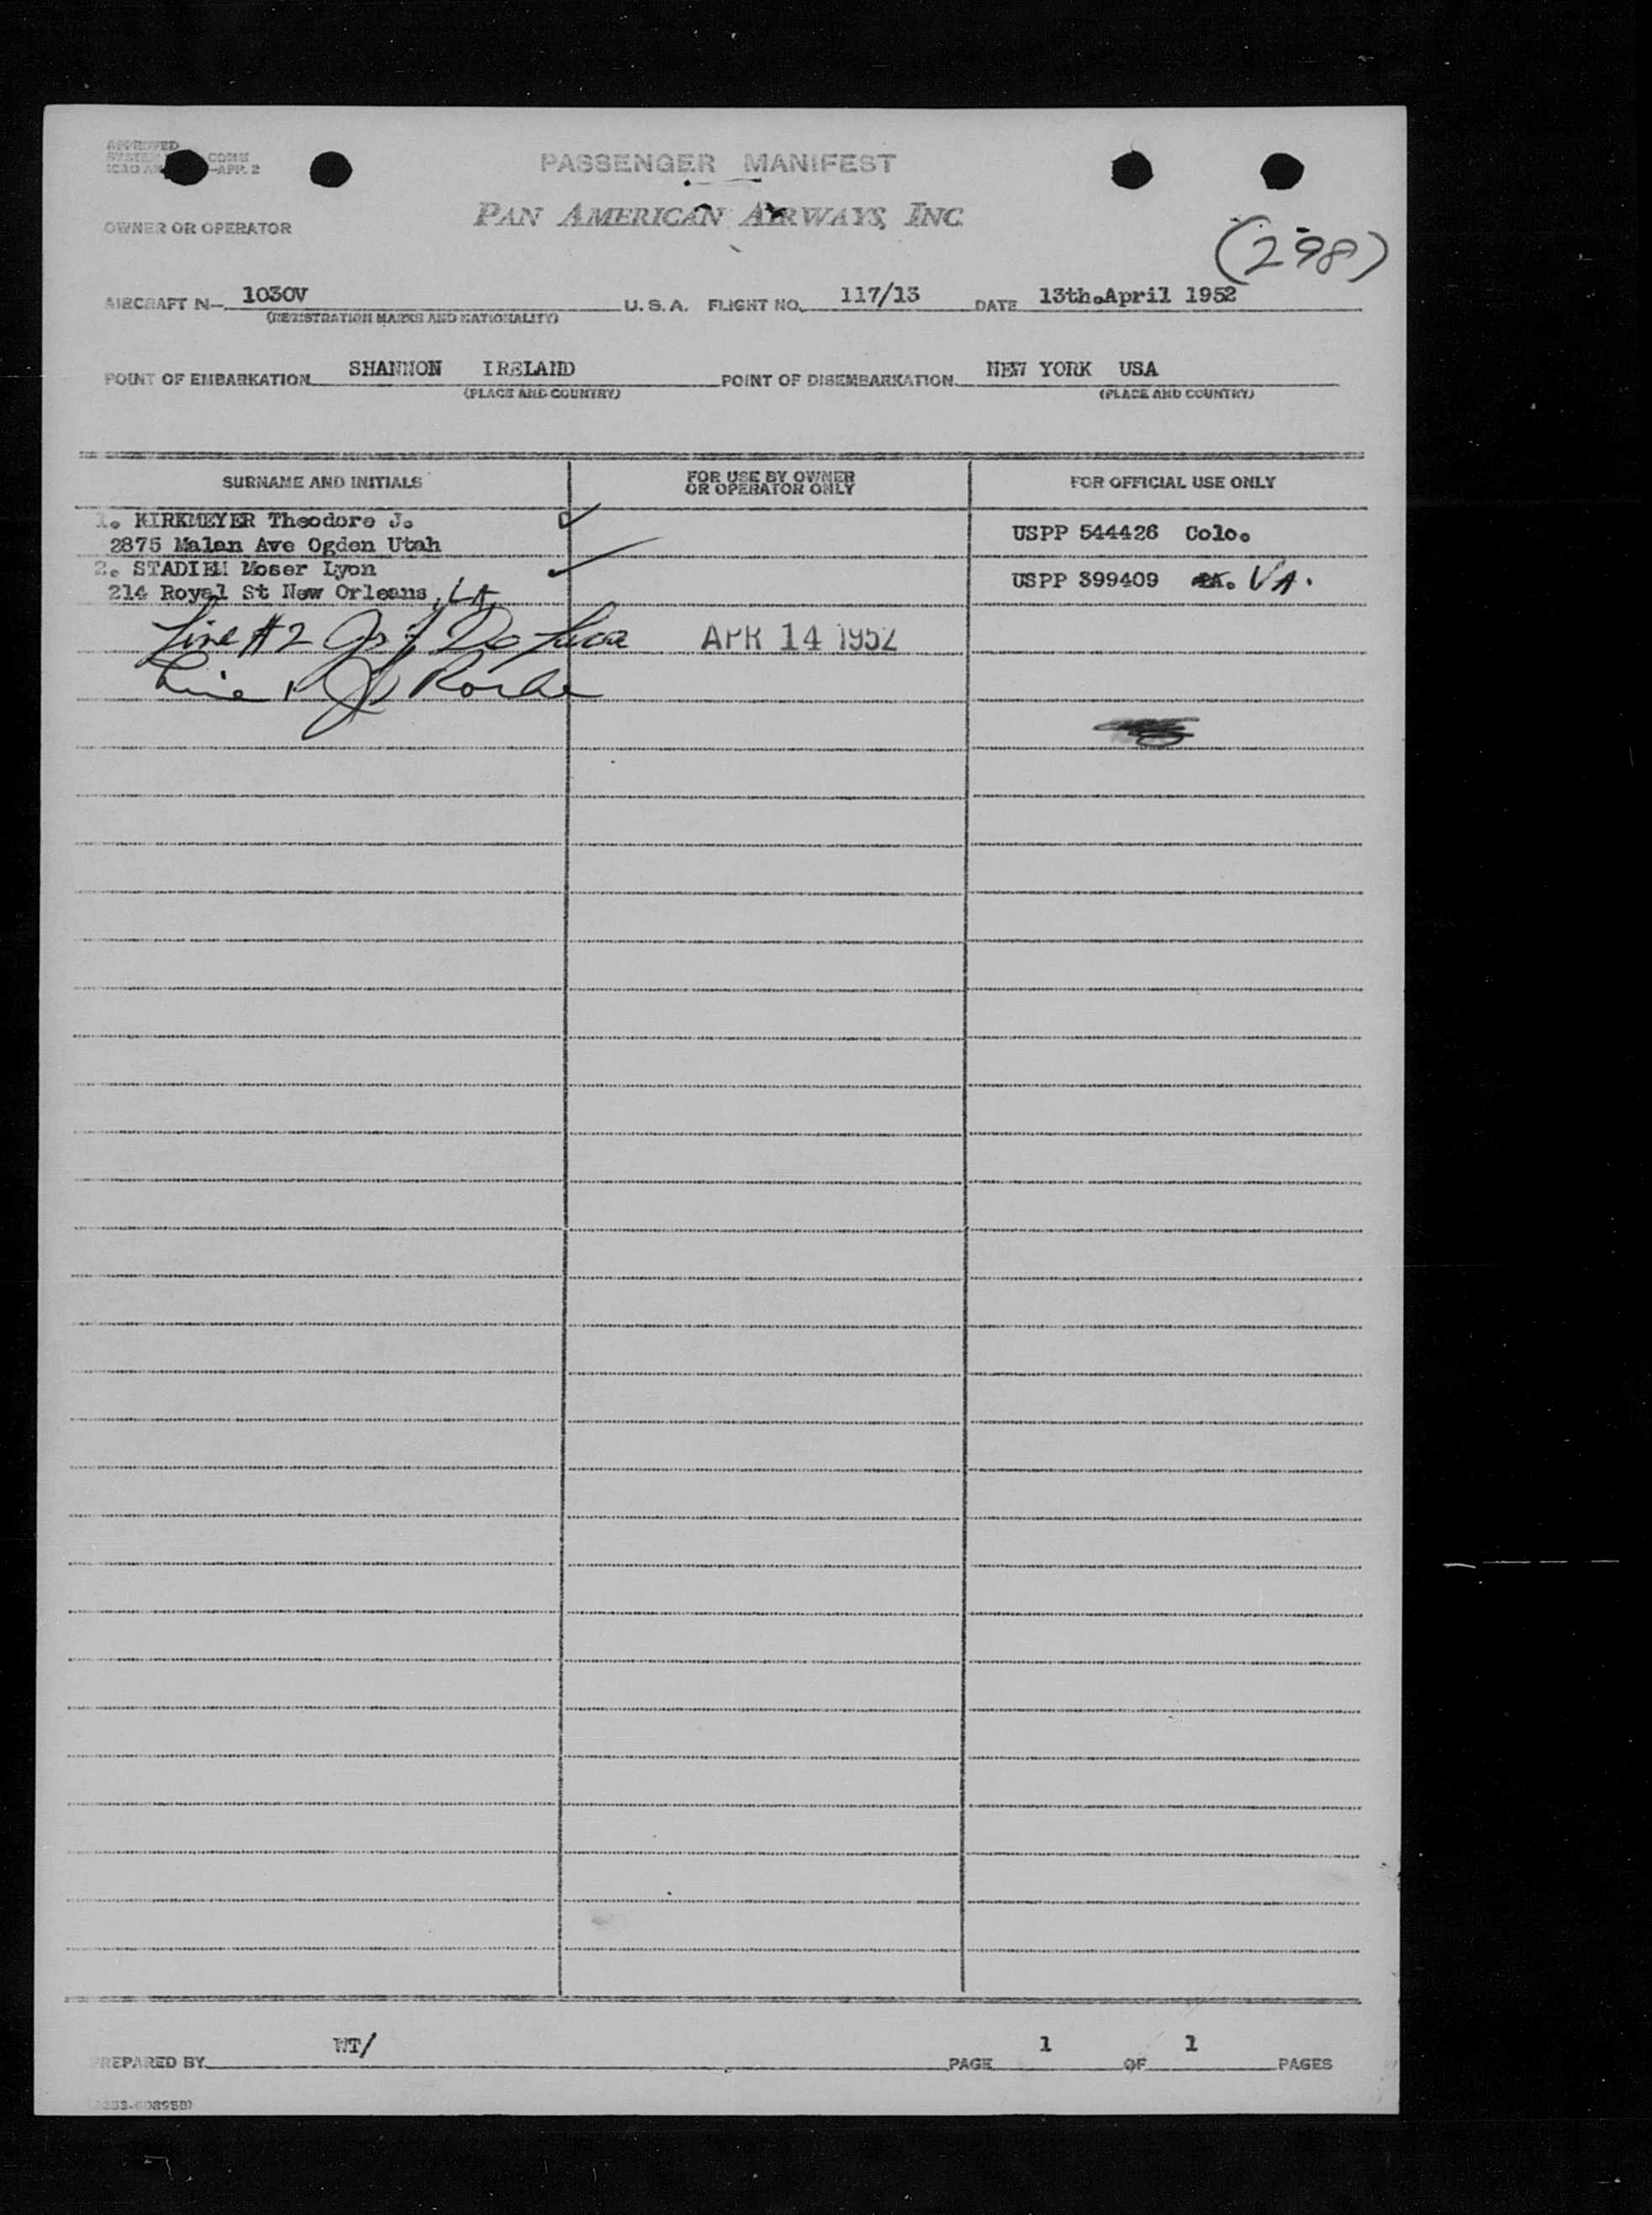 APPROVED
SYSTEM COMM
ICAO AN -APP. 2
PASSENGER MANIFEST
PAN AMERICAN AIRWAYS, INC
OWNER OR OPERATOR
(298)
AIRCRAFT N- 1030V U. S. A. FLIGHT NO. 117/13 DATE 13th.April 1952
(REGISTRATION MARKS AND NATIONALITY)
POINT OF EMBARKATION SHANNON IRELAND POINT OF DISEMBARKATION NEW YORK USA
(PLACE AND COUNTRY) (PLACE AND COUNTRY)
SURNAME AND INITIALS FOR USE BY OWNER FOR OFFICIAL USE ONLY
OR OPERATOR ONLY
1. KIRKMEYER Theodore J. USPP 544426 Colo.
2875 Malan Ave Ogden Utah
2. STADIEM Moser Lyon USPP 399409 VA.
214 Royal St New Orleans, LA
Line #2 De Luca APR 14 1952
Line 1
PREPARED BY WT/ PAGE 1 OF 1 PAGES